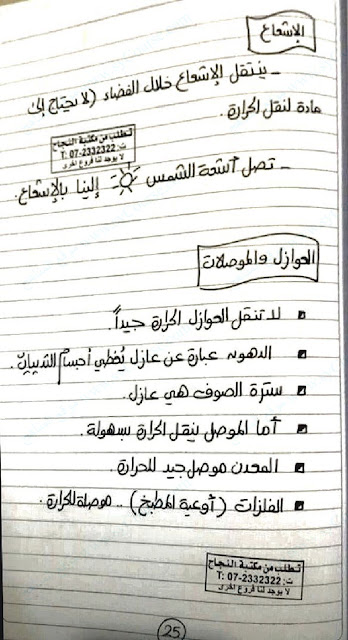 الإشعاع
- ينتقل الإشعاع خلال الفضاء (لا يحتاج إلى
مادة لنقل الحرارة.
تطلب من مكتبة النجاح
ت: T: 07-2332322
لا يوجد لنا فروع اخرى
- تصل أشعة الشمس إلينا بالإشعاع.
العوازل والموصلات
لا تنقل العوازل الحرارة جيداً.
الدهون عبارة عن عازل يُغطي أجسام الثدييات.
سترة الصوف هي عازل.
أما الموصل ينقل الحرارة بسهولة.
المعدن موصل جيد للحرارة.
الفلزات (أوعية المطبخ) .. موصلة للحرارة.
تطلب من مكتبة النجاح
ت: T: 07-2332322
لا يوجد لنا فروع اخرى
25